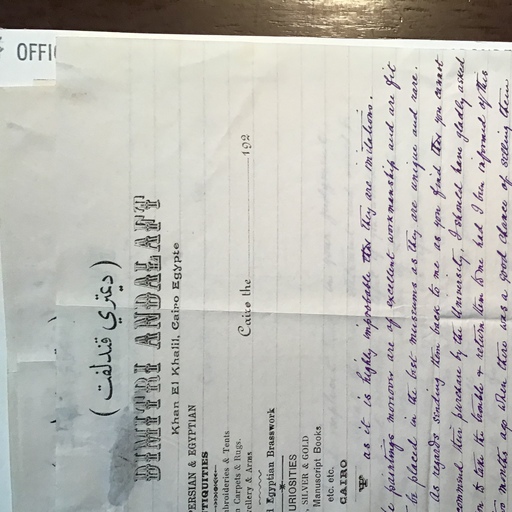 OFFI
( ديمتري قندلفت )
DIMITRI ANDALAFT
Khan El Khalil, Cairo Egypte
PERSIAN & EGYPTIAN
NTIQUITIES
mbroideries & Tents
n Carpets & Rugs.
wellery & Arms
Cairo the 192
d Egyptian Brasswork
URIOSITIES
, SILVER & GOLD
Manuscript Books
etc. etc.
CAIRO
as it is highly improbable that they are imitations.
e paintings moreover are of excellent workmanship and are fit
be placed in the best museums as they are unique and rare.
As regards sending them back to me as you find that you cannot
commend their purchase by the University, I should have gladly asked
to take the trouble & return them to me had I been informed of this
wo months ago when there was a good chance of selling them